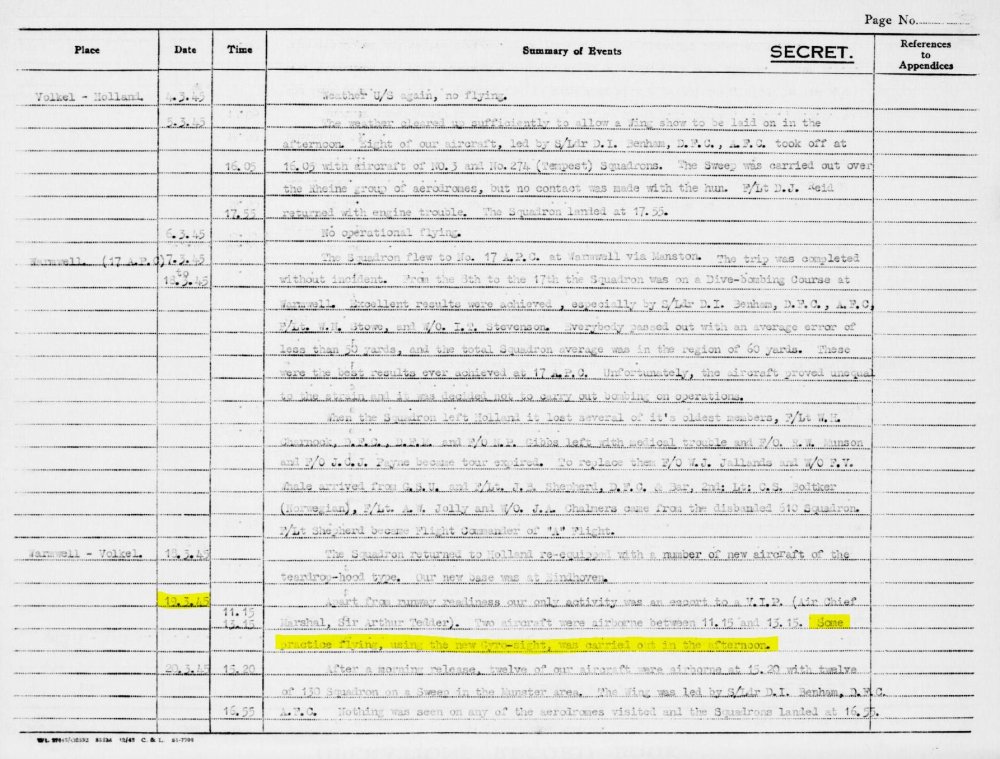 Page No.
Place Date Time Summary of Events SECRET. References to Appendices
Volkel - Holland. 4.3.45 Weather U/S again, no flying.
5.3.45 The weather cleared up sufficiently to allow a Wing show to be laid on in the
afternoon. Eight of our aircraft, led by S/Ldr D.I. Benham, D.F.C., A.F.C. took off at
16.05 16.05 with aircraft of NO.3 and No.274 (Tempest) Squadrons. The Sweep was carried out over
the Rheine group of aerodromes, but no contact was made with the hun. F/Lt D.J. Reid
17.55 returned with engine trouble. The Squadron landed at 17.55.
6.3.45 No operational flying.
Warmwell. (17 A.P.C) 7.3.45 The Squadron flew to No. 17 A.P.C. at Warmwell via Manston. The trip was completed
to
18.3.45 without incident. From the 8th to the 17th the Squadron was on a Dive-bombing Course at
Warmwell. Excellent results were achieved , especially by S/Ldr D.I. Benham, D.F.C., A.F.C,
F/Lt. W.N. Stowe, and W/O. I.T. Stevenson. Everybody passed out with an average error of
less than 50 yards, and the total Squadron average was in the region of 60 yards. These
were the best results ever achieved at 17 A.P.C. Unfortunately, the aircraft proved unequal
to the strain and it was decided not to carry out bombing on operations.
When the Squadron left Holland it lost several of it's oldest members, F/Lt W.H.
Charnock, D.F.C., D.F.M. and F/O N.P. Gibbs left with medical trouble and F/O. R.W. Munson
and F/O J.C.J. Payne became tour expired. To replace them F/O W.J. Jallands and W/O F.V.
Whale arrived from G.S.U. and F/Lt. J.B. Shepherd, D.F.C. & Bar, 2nd: Lt: C.S. Bodtker
(Norwegian), F/Lt. A.W. Jolly and W/O. J.A. Chalmers came from the disbanded 610 Squadron.
F/Lt Shepherd became Flight Commander of "A" Flight.
Warmwell - Volkel. 18.3.45 The Squadron returned to Holland re-equipped with a number of new aircraft of the
teardrop-hood type. Our new base was at Eindhoven.
19.3.45 Apart from runway readiness our only activity was an escort to a V.I.P. (Air Chief
11.15
13.15 Marshal, Sir Arthur Tedder). Two aircraft were airborne between 11.15 and 13.15. Some
practice flying, using the new Gyro-sight, was carried out in the afternoon.
20.3.45 13.20 After a morning release, twelve of our aircraft were airborne at 15.20 with twelve
of 130 Squadron on a Sweep in the Munster area. The Wing was led by S/Ldr D.I. Benham, D.F.C.
16.55 A.F.C. Nothing was seen on any of the aerodromes visited and the Squadrons landed at 16.55.